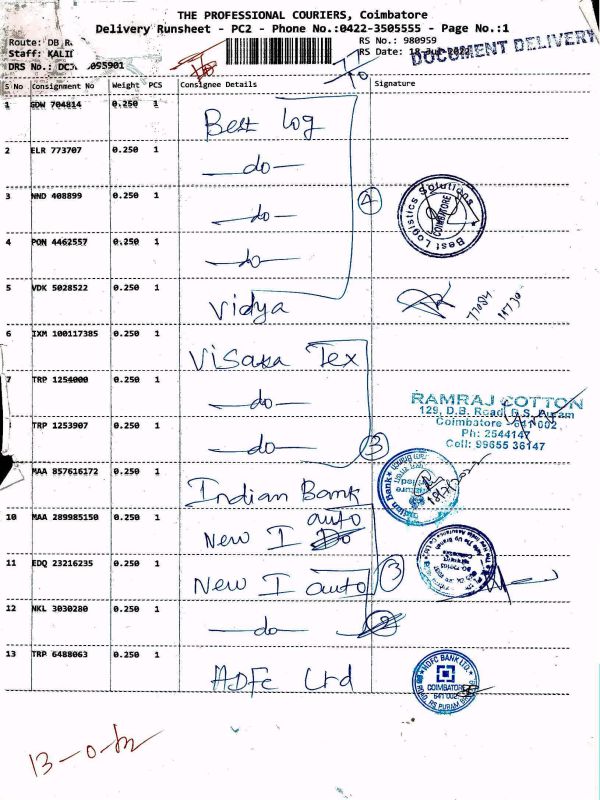 THE PROFESSIONAL COURIERS, Coimbatore
Delivery Runsheet - PC2 - Phone No.:0422-3505555 - Page No.:1
Route: DB R
RS No.: 980959
Staff: KALI
RS Date: 18-
DOCUMENT DELIVERY
DRS No.: 095901
S No Consignment No Weight PCS Consignee Details Signature
1 GDW 704814 0.250 1 Best Log
2 ELR 773707 0.250 1 —do—
3 NND 408899 0.250 1 —do—
4 PON 4462557 0.250 1 —do—
4
Best Logistics Solutions
COIMBATORE
5 VDK 5028522 0.250 1 Vidya
6 IXM 100117385 0.250 1 Visaka Tex
7 TRP 1254000 0.250 1 —do—
TRP 1253907 0.250 1 —do—
3
RAMRAJ COTTON
129, D.B. Road, R.S. Puram
Coimbatore - 641 002
Ph: 2544147
Cell: 99655 36147
MAA 857616172 0.250 1 Indian Bank
10 MAA 289985150 0.250 1 New I auto
11 EDQ 23216235 0.250 1 New I auto
3
12 NKL 3030280 0.250 1 —do—
13 TRP 6488063 0.250 1 HDFC Ltd
HDFC BANK LTD.
COIMBATORE
641 002
13-0-